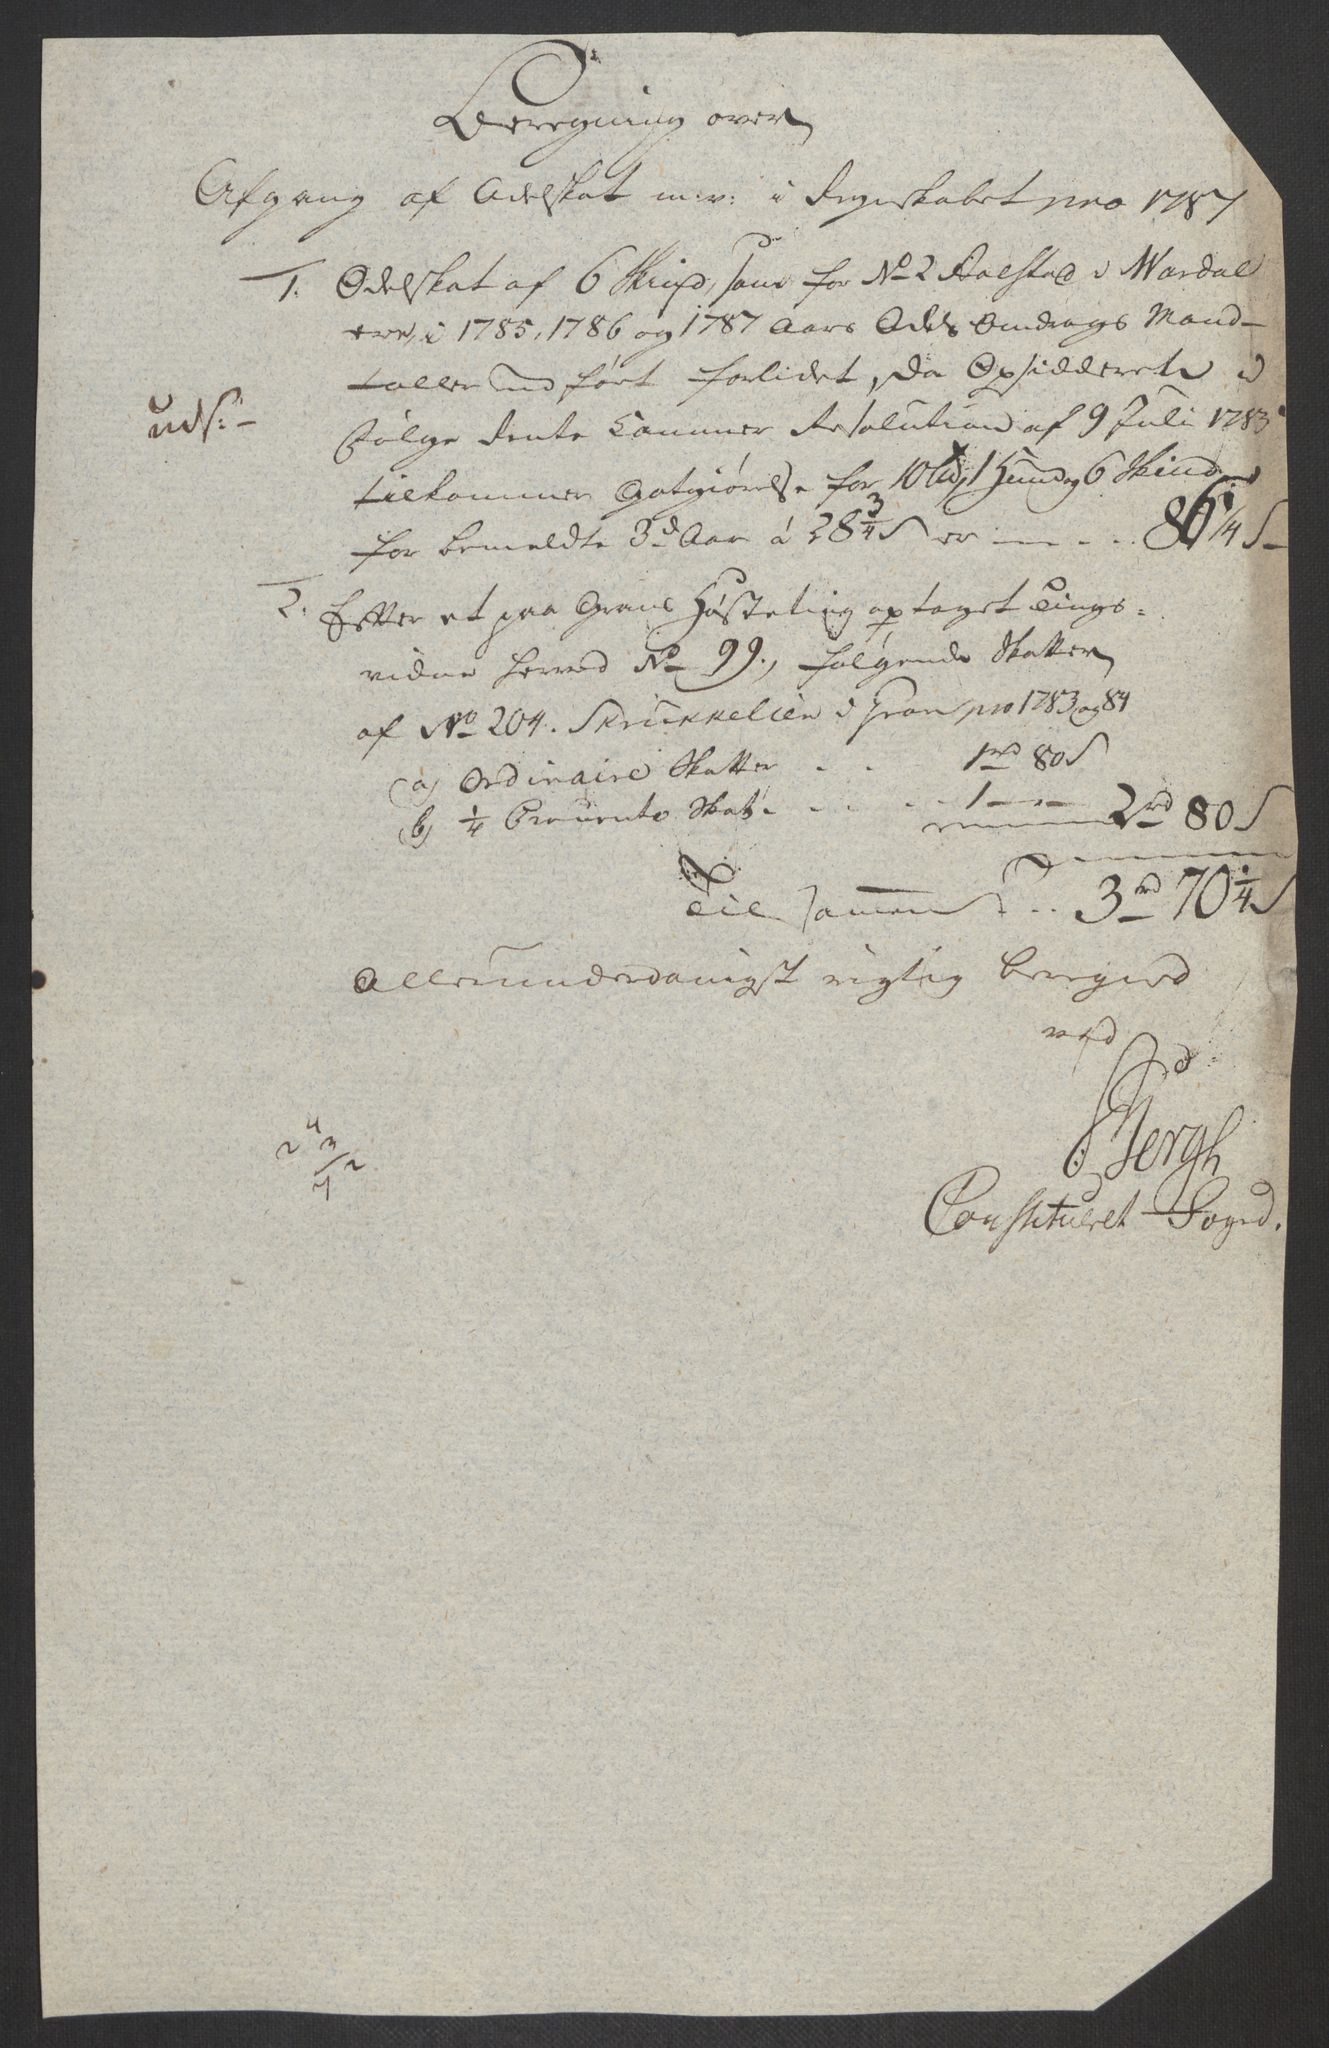 Beregning over
Afgang af Odelskat m. v: i Regnskabet pro 1787
1. Odelskat af 6 Skind, som for No 2 Aalstad i Wardal
ere, i 1785, 1786 og 1787 Aars Odels Omdrags Mand-
taller anført forlidet, da Opsidderen i
uds:-
Følge Rente Cammer Resolution af 9 Juli 1783
tilkommer Gotgiørelse for 10 1 Hund og 6 Skind
for bemeldte 3de Aar à 28 3/4 s er - - - 86 1/4 s
2. Efter et paa Grans Høsteting optaget Tings-
vidne herved No 99., følgende Skatter
af No 204. Skrukkelien i Gran pro 1783 og 84
(a) Ordinaire Skatter . . 1 rd 80 s
(b) 1/4 Procento Skat . . . . 1 - - 2 rd 80 s
Tilsammen . . 3 rd 70 1/4 s
Allerunderdanigst rigtig beregned
ved
Bergh
Constitueret Foged.